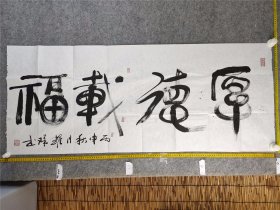 厚德載福
丙申秋月